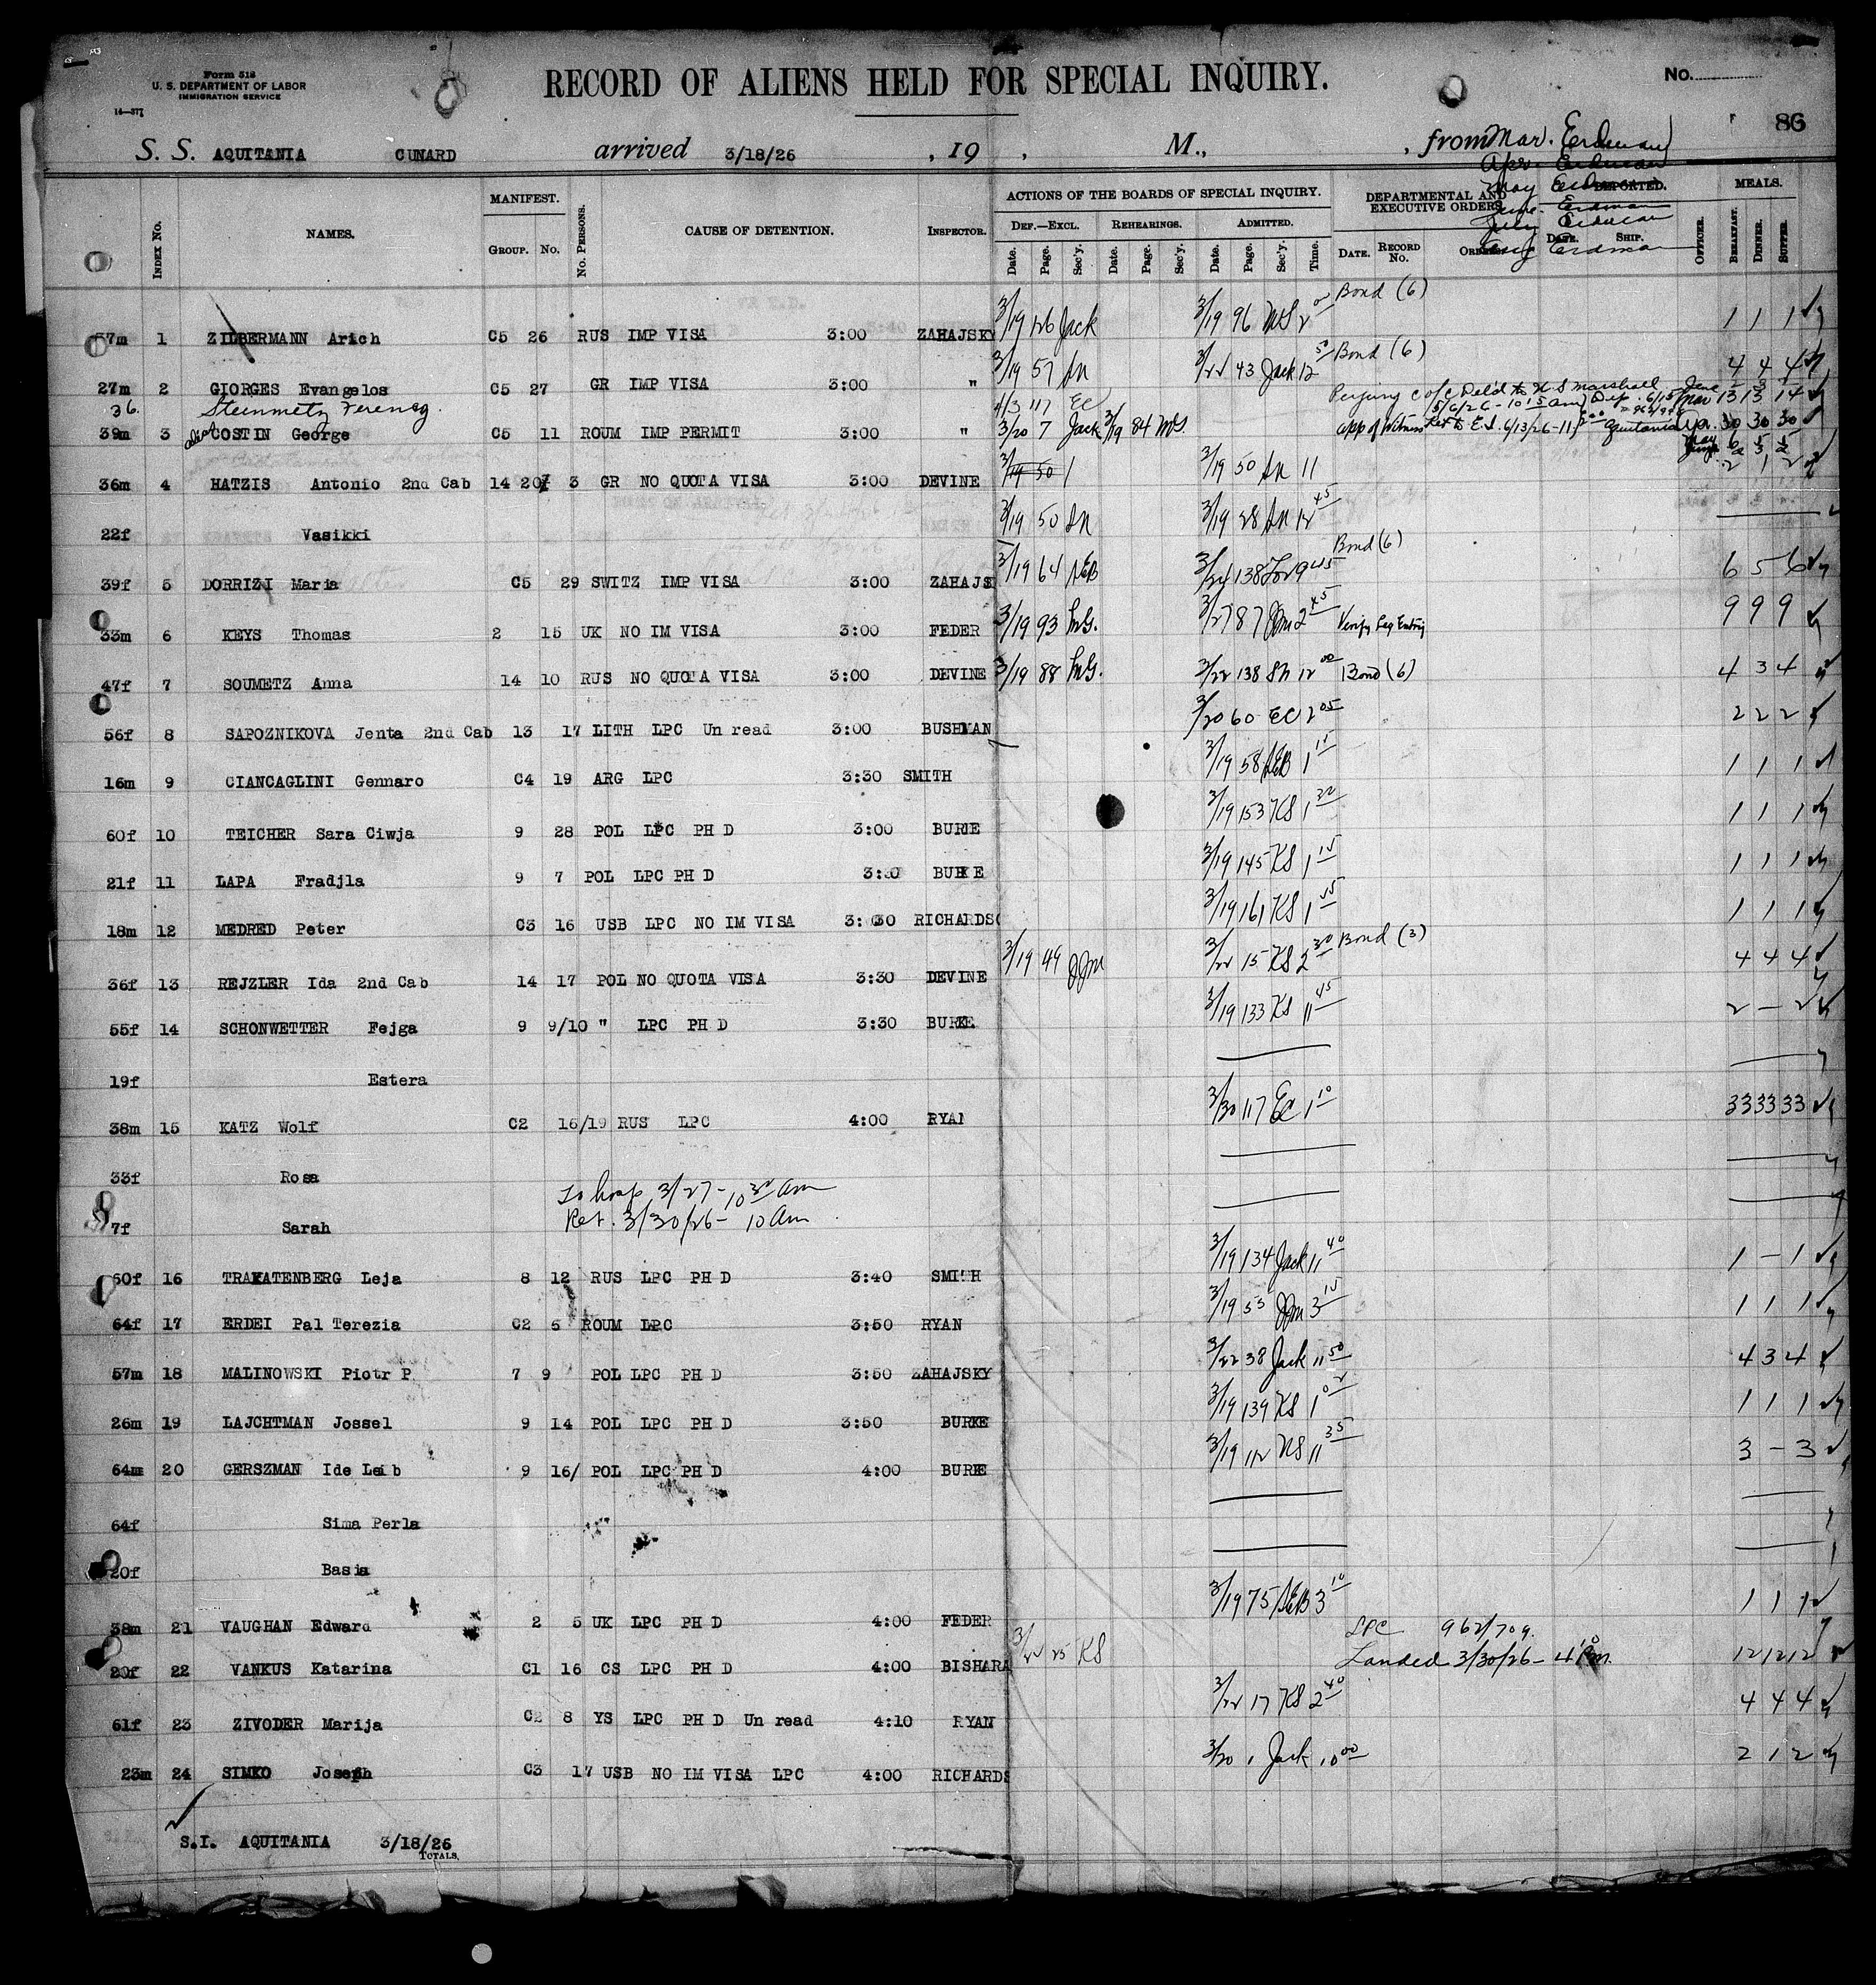 Form 518
U. S. DEPARTMENT OF LABOR
IMMIGRATION SERVICE
14—377
RECORD OF ALIENS HELD FOR SPECIAL INQUIRY.
No.
86
S. S. AQUITANIA CUNARD arrived 3/18/26 , 19 , M., , from Mar. Erdman
Apr. Erdman
May Erdman
June. Erdman
July Erdman
Aug Erdman
INDEX NO. NAMES. MANIFEST. GROUP. NO. NO. PERSONS. CAUSE OF DETENTION. INSPECTOR. ACTIONS OF THE BOARDS OF SPECIAL INQUIRY. DEPARTMENTAL AND EXECUTIVE ORDERS. DEPORTED. MEALS.
DEF.—EXCL. REHEARINGS. ADMITTED.
Date. Page. Sec'y. Date. Page. Sec'y. Date. Page. Sec'y. Time. DATE. RECORD NO. ORDERS. DATE. SHIP. OFFICER. BREAKFAST. DINNER. SUPPER.
37m 1 ZILBERMANN Arich C5 26 RUS IMP VISA 3:00 ZAHAJSKY 3/19 126 Jack 3/19 96 MS 2 Bond (6) 1 1 1
27m 2 GIORGES Evangelos C5 27 GR IMP VISA 3:00 " 3/19 57 3/22 43 Jack 12 50 Bond (6) 4 4 4
36. Steinmetz Ferencz. 4/3 117 EC Perjury c of c Del'd to U S marshall
5/6/26 - 10 15 am Dep. 6/15 Mar 13 13 14
39m 3 alias COSTIN George C5 11 ROUM IMP PERMIT 3:00 " 3/20 7 Jack 3/9 84 MS. app of Witness Ret to E.I. 6/13/26 - 11 Aquitania Apr. 30 30 30
May 6 5 5
36m 4 HATZIS Antonio 2nd Cab 14 20 3 GR NO QUOTA VISA 3:00 DEVINE 3/19 50 3/19 50 11 2 1 2
22f Vasikki 3/19 50 3/19 28 12 45
39f 5 DORRIZI Maria C5 29 SWITZ IMP VISA 3:00 ZAHAJS 3/19 64 AEB 3/24 138 9 45 Bond (6) 6 5 6
33m 6 KEYS Thomas 2 15 UK NO IM VISA 3:00 FEDER 3/19 93 MG. 3/27 87 JJM 2 45 Verify Leg Entry 9 9 9
47f 7 SOUMETZ Anna 14 10 RUS NO QUOTA VISA 3:00 DEVINE 3/19 88 MG. 3/22 138 12 00 Bond (6) 4 3 4
56f 8 SAPOZNIKOVA Jenta 2nd Cab 13 17 LITH LPC Un read 3:00 BUSHMAN 3/20 60 EC 2 05 2 2 2
16m 9 CIANCAGLINI Gennaro C4 19 ARG LPC 3:30 SMITH 3/19 58 AEB 1 15 1 1 1
60f 10 TEICHER Sara Ciwja 9 28 POL LPC PH D 3:00 BURKE 3/19 153 KS 1 30 1 1 1
21f 11 LAPA Fradjla 9 7 POL LPC PH D BURKE 3/19 145 KS 1 15 1 1 1
18m 12 MEDRED Peter C3 16 USB LPC NO IM VISA 3:30 RICHARDSO 3/19 161 KS 1 55 1 1 1
36f 13 REJZLER Ida 2nd Cab 14 17 POL NO QUOTA VISA 3:30 DEVINE 3/19 49 JJM 3/22 15 KS 2 30 Bond (3) 4 4 4
55f 14 SCHONWETTER Fejga 9 9/10 " LPC PH D 3:30 BURKE 3/19 133 KS 11 45 2 - 2
19f Estera
38m 15 KATZ Wolf C2 16/19 RUS LPC 4:00 RYAN 3/30 117 EC 1 10 33 33 33
33f Rosa
To hosp. 3/27 - 10 30 am
7f Sarah Ret. 3/30/26 - 10 am
60f 16 TRAKATENBERG Leja 8 12 RUS LPC PH D 3:40 SMITH 3/19 134 Jack 11 40 1 - 1
64f 17 ERDEI Pal Terezia C2 5 ROUM LPC 3:50 RYAN 3/19 55 JJM 3 15 1 1 1
57m 18 MALINOWSKI Piotr P 7 9 POL LPC PH D 3:50 ZAHAJSKY 3/22 38 Jack 11 50 4 3 4
26m 19 LAJCHTMAN Jossel 9 14 POL LPC PH D 3:50 BURKE 3/19 139 KS 1 1 1 1
64m 20 GERSZMAN Ide Leib 9 16/ POL LPC PH D 4:00 BURKE 3/19 112 KS 11 35 3 - 3
64f Sima Perla
20f Basia
38m 21 VAUGHAN Edward 2 5 UK LPC PH D 4:00 FEDER 3/19 75 AEB 3 10 1 1 1
LPC 962/709.
20f 22 VANKUS Katarina C1 16 CS LPC PH D 4:00 BISHARA 25 KS Landed 3/30/26 - 4 Pm. 12 12 12
61f 23 ZIVODER Marija C2 8 YS LPC PH D Un read 4:10 RYAN 3/22 17 KS 2 40 4 4 4
23m 24 SIMKO Joseph C3 17 USB NO IM VISA LPC 4:00 RICHARDS 3/20 1 Jack 10 00 2 1 2
S.I. AQUITANIA 3/18/26
TOTALS.